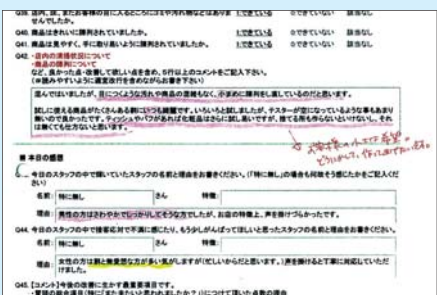 Q39. 店内、試、またお客様の目に入るところにゴミや汚れ物などはありま 1.できている 0.できていない 該当なし
せんでしたか。
Q40. 商品はきれいに陳列されていましたか。 1.できている 0.できていない 該当なし
Q41. 商品は見やすく、手に取り易いように陳列されていましたか。 1.できている 0.できていない 該当なし
Q42. ・店内の清掃状況について
・商品の陳列について
など、良かった点・改善して欲しい点を含め、5行以上のコメントをご記入下さい。
(※読みやすいように適宜改行を含めながらお書き下さい)
混んではいましたが、目につくような汚れや商品の混雑もなく、小まめに陳列をし直しているのだと思います。
試しに使える商品がたくさんある割にいつも綺麗です。いろいろと試しましたが、テスターが空になっているような事もあまり
無いので良かったです。ティッシュやパフがあれば化粧品はさらに試し易いですが、捨てる所も作らないといけないし、それ
は無くても仕方ないと思います。
■ 本日の感想
今日のスタッフの中で輝いていたスタッフの名前と理由をお書きください。(「特に無し」の場合も何故そう感じたかをご記入くだ
さい)
名前: 特に無し さん 特徴:
理由: 男性の方はさわやかでしっかりしてそうな方でしたが、お店の特徴上、声を掛けづらかったです。
Q44. 今日のスタッフの中で接客応対で不満に感じたり、もう少しがんばってほしいと思ったスタッフの名前と理由をお書きください。
名前: 特に無し さん 特徴:
理由: 女性の方は割と無愛想な方が多い気がしますが(忙しいからだと思います。)声を掛けると丁寧に対応していただ
けました。
Q45. 【コメント】今後の改善に生かす最重要項目です。
・冒頭の総合項目(特に「また来たいと思われましたか?」)につけて頂いた点数の理由